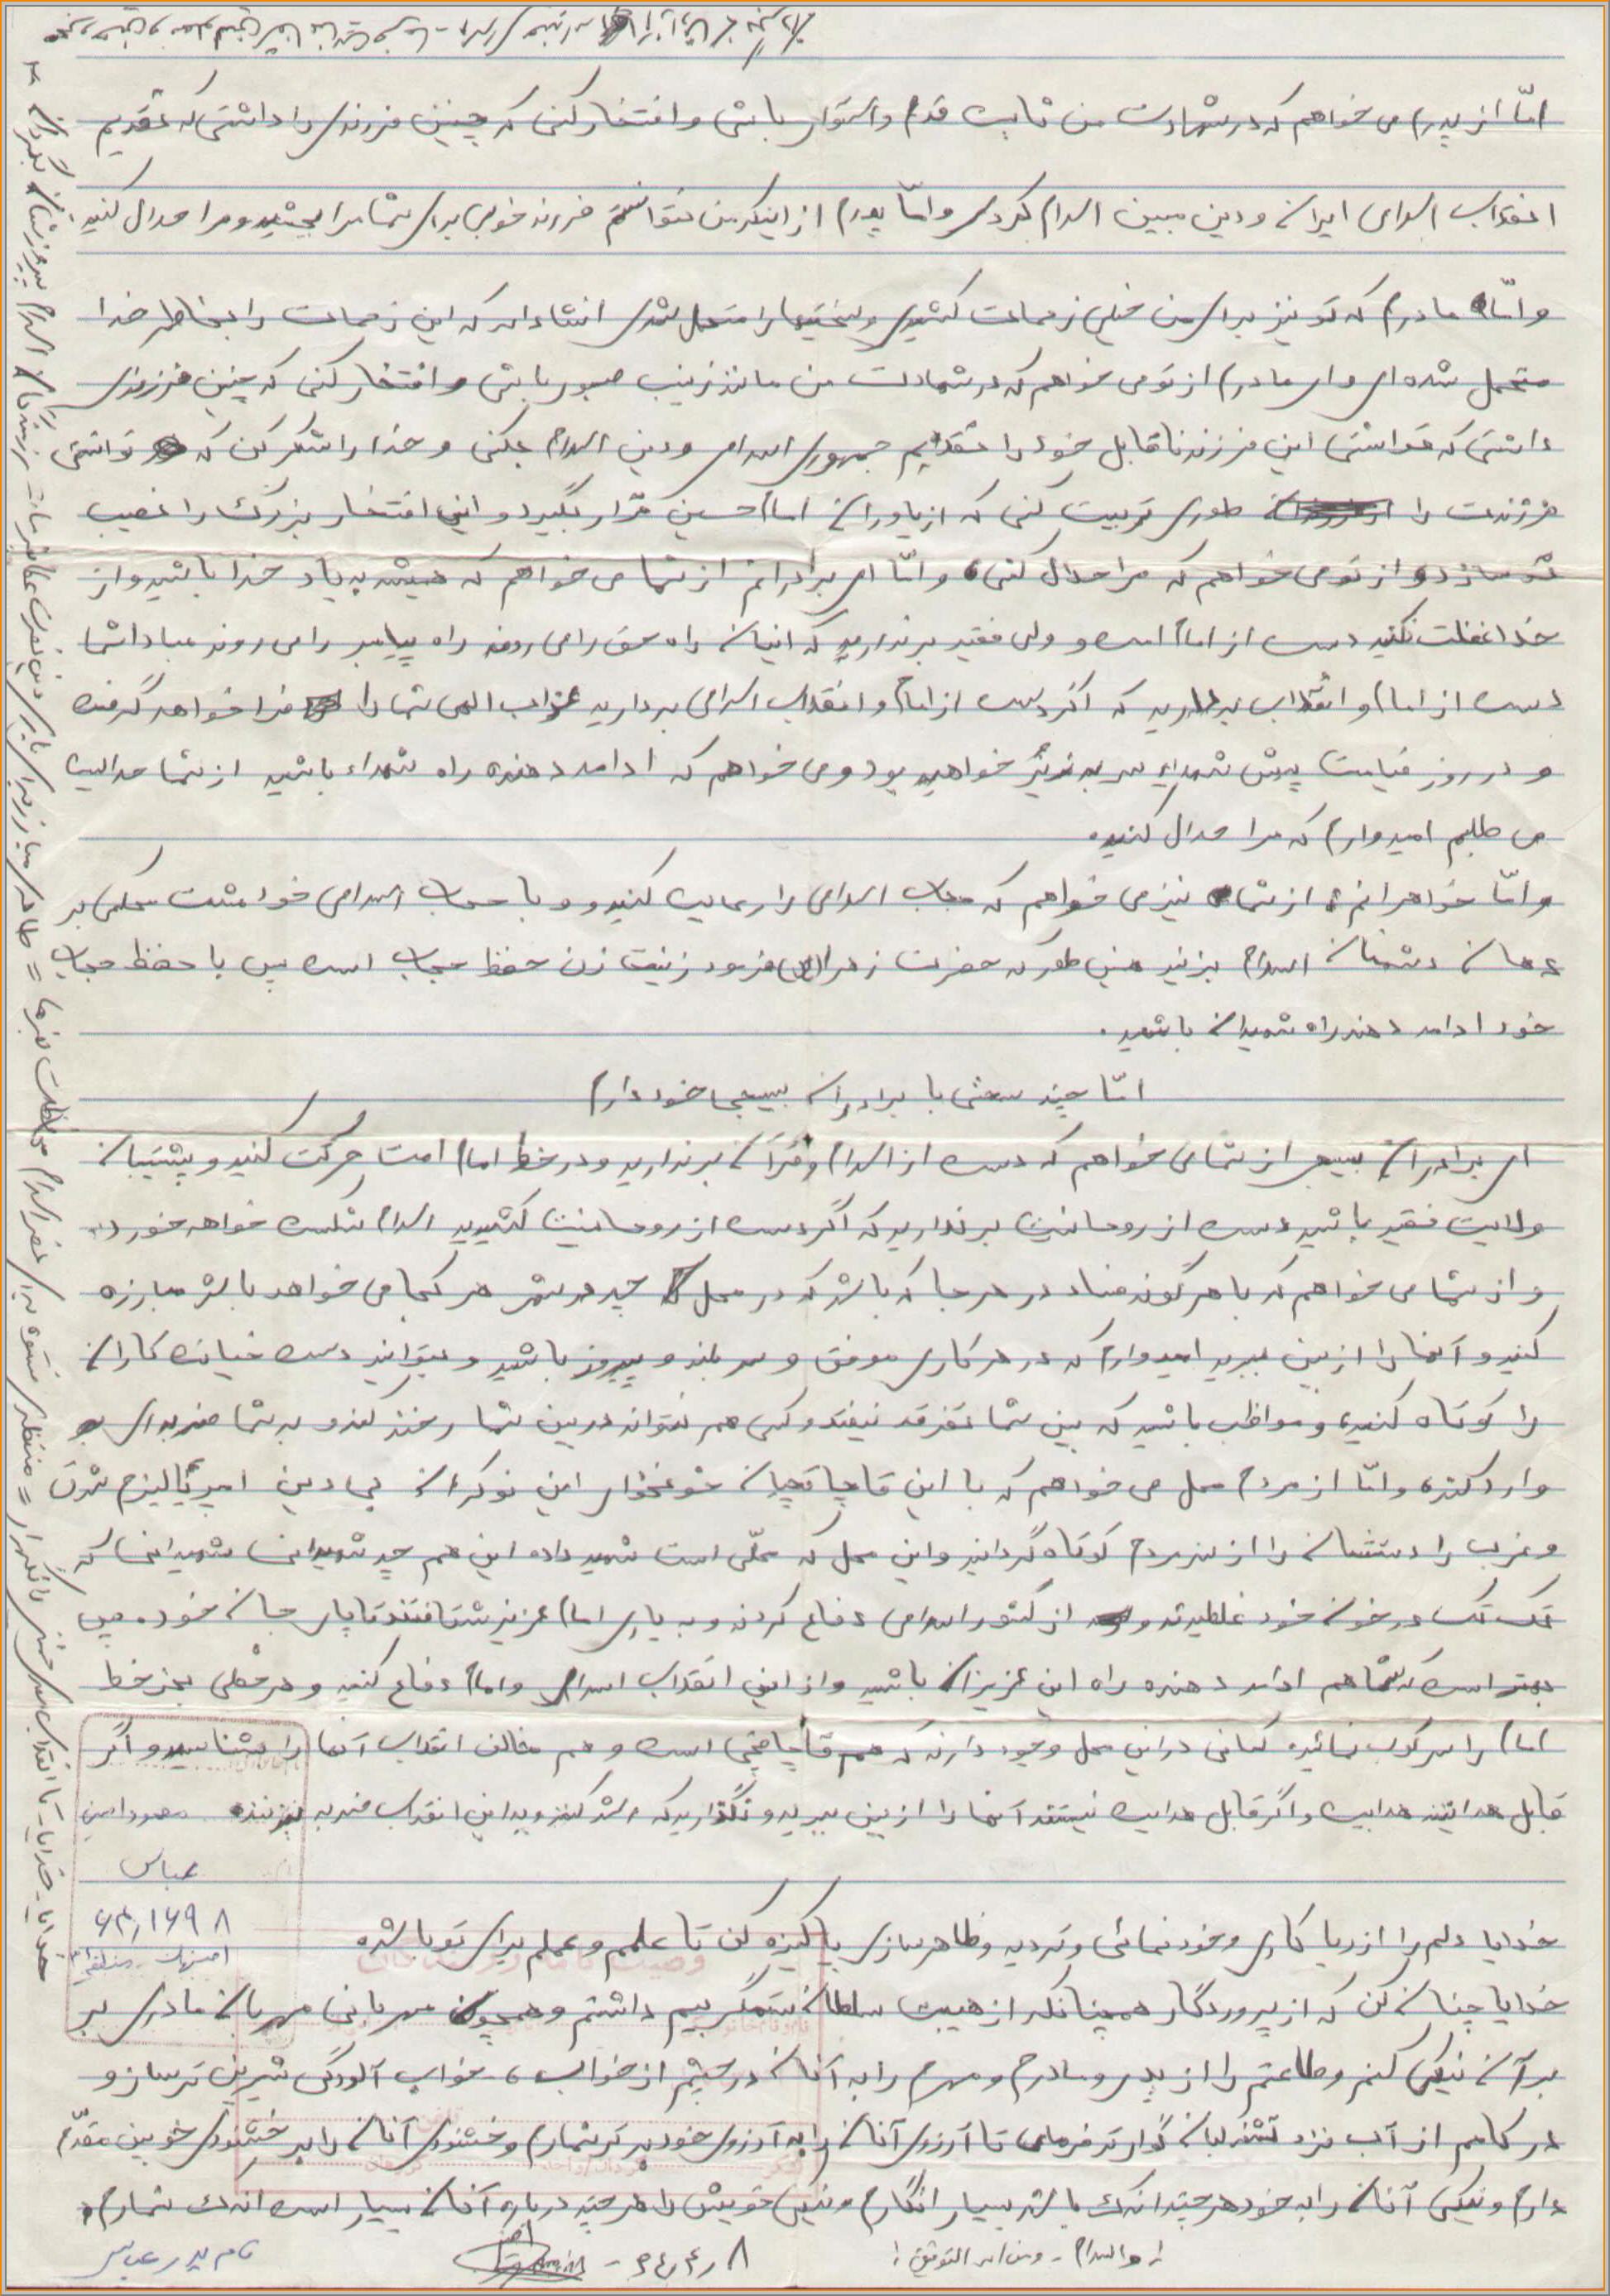 امّا از پدرم می خواهم که در شهادت من ثابت قدم و استوار باشی و افتخار کنی که چنین فرزندی را داشتی که تقدیم
انقلاب اسلامی ایران و دین مبین اسلام کردی و امّا پدرم از اینکه من نتوانستم فرزند خوبی برای شما مرا ببخشید و مرا حلال کنید.
و امّا مادرم که تو نیز برای من خیلی زحمات کشیدی و سختیها را متحمل شدی انشاءالله که این زحمات را بخاطر خدا
متحمل شده ای و ای مادرم از تو می خواهم که در شهادت من مانند زینب صبور باشی و افتخار کنی که چنین فرزندی
داشتی که توانستی این فرزند ناقابل خود را تقدیم جمهوری اسلامی و دین اسلام بکنی و خدا را شکر کن که توانستی
فرزندت را طوری تربیت کنی که از یاوران امام حسین قرار بگیرد و این افتخار بزرگ را نصیب
تو سازد و از تو می خواهم که مرا حلال کنی، و امّا ای برادرانم از شما می خواهم که همیشه به یاد خدا باشید و از
خدا غفلت نکنید دست از امام امت و ولی فقیه برندارید که اینان راه حق را می روند راه پیامبر را می روند مبادا شما
دست از امام و انقلاب بردارید که اگر دست از امام و انقلاب اسلامی بردارید عذاب الهی شما را فرا خواهد گرفت
و در روز قیامت پیش شهداء سر به زیر خواهید بود و می خواهم که ادامه دهنده راه شهداء باشید از شما حلالیت
می طلبم امیدوارم که مرا حلال کنید.
و امّا خواهرانم، از شما نیز می خواهم که حجاب اسلامی را رعایت کنید و با حجاب اسلامی خود مشت محکمی بر
دهان دشمنان اسلام بزنید همین طور که حضرت زهرا (س) فرمود زینت زن حفظ حجاب است پس با حفظ حجاب
خود ادامه دهنده راه شهیدان باشید.
امّا چند سخنی با برادران بسیجی خود دارم
ای برادران بسیجی از شما می خواهم که دست از اسلام و قرآن برندارید و در خط امام امت حرکت کنید و پشتیبان
ولایت فقیه باشید دست از روحانیت برندارید که اگر دست از روحانیت کشیدید اسلام شکست خواهد خورد.
و از شما می خواهم که با هر گونه فساد در هر جا که باشد که در محل چه در شهر هر کجا می خواهد باشد مبارزه
کنید و آنها را از بین ببرید امیدوارم که در هر کاری موفق و سربلند و پیروز باشید و بتوانید دست خیانت کاران
را کوتاه کنید، و مواظب باشید که بین شما تفرقه نیفتد و کسی هم نتواند در بین شما رخنه کند و به شما ضربه ای
وارد کند، و امّا از مردم محل می خواهم که با این قاچاقچیان خونخوار این نوکران بی دین امپریالیزم شرق
و غرب را دستشان را از سر مردم کوتاه گردانید و این محل که محلّی است شهید داده این هم چه شهیدانی شهیدانی که
تک تک در خون خود غلطیدند و از کشور اسلامی دفاع کردند و به یاری امام عزیز شتافتند تا پای جان خود، پس
بهتر است که شما هم ادامه دهنده راه این عزیزان باشید و از این انقلاب اسلامی و امام دفاع کنید و هر خطی بجز خط
امام را سرکوب نمائید، کسانی در این محل وجود دارند که هم قاچاقچی است و هم مخالف انقلاب آنها را بشناسید و اگر
قابل هدایتند هدایت و اگر قابل هدایت نیستند آنها را از بین ببرید و نگذارید که رشد کنند و به این انقلاب ضربه بزنند.
عباس
خدایا دلم را از ریا کاری و خودنمائی و تردید و ظاهرسازی پاکیزه کن تا علمم و عملم برای تو باشد
خدایا چنان کن که از پروردگار همچنانکه از هیبت سلطان ستمگر بیم داشتم و همچون مهربانی مهربان مادری بر
بر آنان نیکی کنم و طاعتم را از پدر و مادرم و مهرم را به آنان در چشم از خواب، خواب آلودگی شیرین تر ساز و
در کامم از آب نزد تشنه لبان گوارتر فرمای تا آرزوی آنان را به آرزوی خود برتر شمارم و خشنودی آنان را بر خشنودی خویش مقدّم
دارم و نیکی آنان را به خود هر چند اندک باشد بسیار انگارم و نیکی خویش را هر چند درباره آنان بسیار است اندک شمارم.
والسلام - و من الله التوفیق
نام پدر عباس